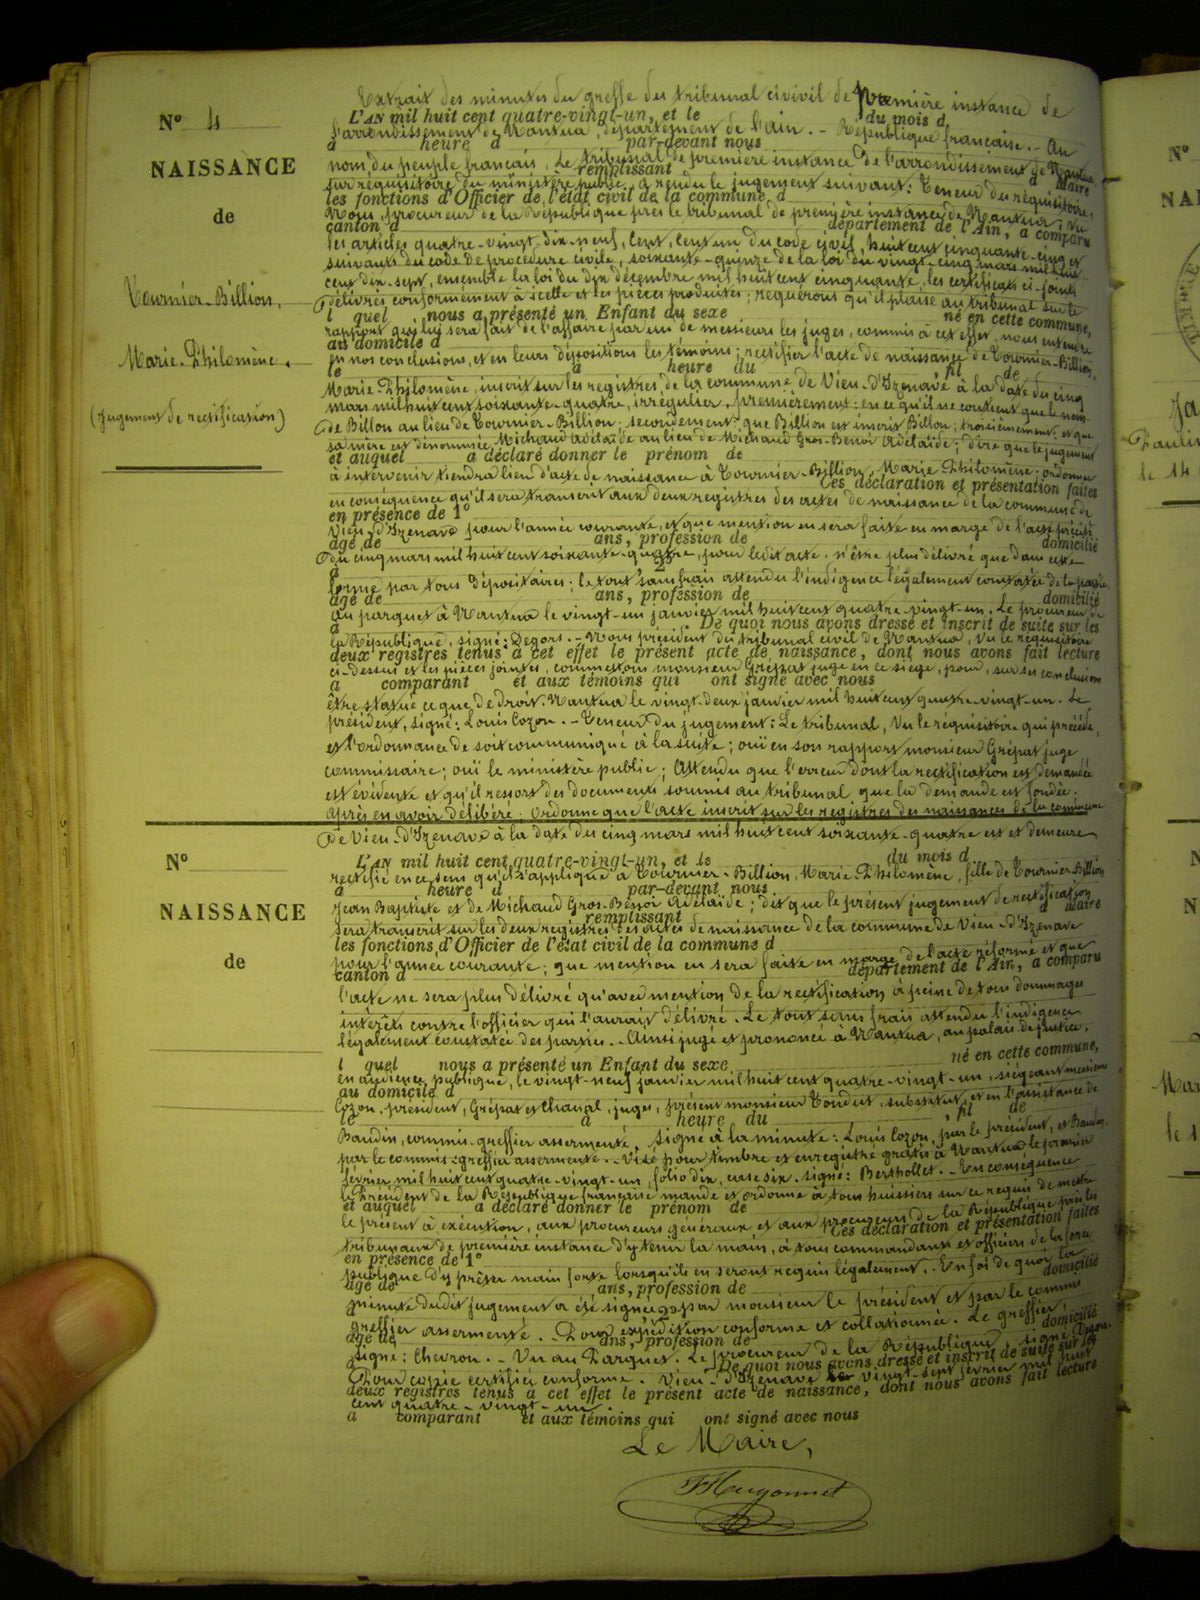 N° 4
NAISSANCE
de
Tournier-Billion,
Marie-Philomène.
(Jugement de rectification)
Extrait des minutes du greffe du tribunal civivil de première instance de
L'AN mil huit cent quatre-vingt-un, et le du mois d
l'arrondissement de Nantua, département de l'ain. - République française. - Au
à heure d par-devant nous
nom du peuple français. Le tribunal de première instance de l'arrondissement de Nantua
remplissant
sur réquisitoire du ministère public, a rendu le jugement suivant: Teneur du réquisitoire,
à Maire
les fonctions d'Officier de l'état civil de la commune d
Nous, procureur de la République près le tribunal de première instance de Nantua; Vu
canton d département de l'Ain, a comparu
les articles quatre-vingt-dix-neuf, cent, cent un du code civil, huit cent cinquante-cinq et
suivants du code de procédure civile, soixante-quinze de la loi du vingt-cinq mars mil huit
cent dix-sept, ensemble la loi du dix décembre mil huit cent cinquante, les certificats ci-joints
délivrés conformément à icelle et les pièces produites; requérons qu'il plaise au tribunal sur le
l quel nous a présenté un Enfant du sexe né en cette commune,
rapport qui lui sera fait de l'affaire par un de messieurs les juges, commis à cet effet, nous entendre
au domicile d
en nos conclusions, et en leurs dépositions les témoins; rectifier l'acte de naissance de Tournier-Billion,
le à heure du fil de
Marie-Philomène, inscrit sur les registres de la commune de Vieu-d'Izenave à la date du cinq
mars mil huit cent soixante-quatre, irrégulier, premièrement: en ce qu'il ne contient que le nom
de Billon au lieu de Tournier-Billion; secondement: que Billion est inscrit Billon; troisièmement, et que
sa mère est dénommée Michaud Adélaïde au lieu de Michaud Gros-Benoi Adélaïde; dire que le jugement
et auquel a déclaré donner le prénom de
à intervenir tiendra lieu d'acte de naissance à Tournier-Billion, Marie Philomène; ordonner
Ces déclaration et présentation faites
en conséquence qu'il sera transcrit aux deux registres des actes de naissance de la commune de
en présence de 1°
Vieu-d'Izenave pour l'année courante, et que mention en sera faite en marge de l'acte précité
âgé de ans, profession de domicilié
du cinq mars mil huit cent soixante-quatre, pour ledit acte n'être plus délivré que dans cette
à 2°
forme par tous dépositaires; le tout sans frais attendu l'indigence légalement constatée de la partie.
âgé de ans, profession de domicilié
Au parquet à Nantua le vingt-un janvier mil huit cent quatre-vingt-un. Le procureur de
à De quoi nous avons dressé et inscrit de suite sur les
la République, signé: Degors. - Nous président du tribunal civil de Nantua, Vu le réquisitoire
deux registres tenus à cet effet le présent acte de naissance, dont nous avons fait lecture
ci-dessus et les pièces jointes, commettons monsieur Grépat juge en ce siège, pour, sur ses conclusions
a comparant et aux témoins qui ont signé avec nous
être statué ce que de droit. Nantua le vingt-deux janvier mil huit cent quatre-vingt-un. Le
président, signé: Louis Cozon. - Teneur du jugement: Le tribunal, Vu le réquisitoire qui précède,
et l'ordonnance de soit communiqué à la suite; ouï en son rapport monsieur Grépat juge
commissaire; ouï le ministère public; Attendu que l'erreur dont la rectification est demandée
est évidente et qu'il ressort des documents soumis au tribunal que la demande est fondée.
après en avoir délibéré. Ordonne que l'acte inscrit sur les registres des naissances de la commune
de Vieu-d'Izenave à la date du cinq mars mil huit cent soixante-quatre est et demeure
N°
NAISSANCE
de
L'AN mil huit cent quatre-vingt-un, et le du mois d
rectifié en ce sens qu'il s'applique à Tournier-Billion, Marie Philomène, fille de Tournier-Billion
à heure d par-devant nous
Jean Baptiste et de Michaud Gros-Benoi Adélaïde; dit que le présent jugement de rectification
remplissant à Maire
sera transcrit sur les deux registres des actes de naissance de la commune de Vieu-d'Izenave
les fonctions d'Officier de l'état civil de la commune d
pour l'année courante; que mention en sera faite en marge de l'acte réformé et que
canton d département de l'Ain, a comparu
l'acte ne sera plus délivré qu'avec mention de la rectification à peine de tous dommages
intérêts contre l'officier qui l'aurait délivré. Le tout sans frais attendu l'indigence
légalement constatée des parties. - Ainsi jugé et prononcé à Nantua, au palais de justice,
l quel nous a présenté un Enfant du sexe né en cette commune,
en audience publique, le vingt-neuf janvier mil huit cent quatre-vingt-un, siégeant messieurs
au domicile d
Cozon, président, Grépat et Chanal, juges, présent monsieur Tondut, substitut, et en l'assistance de
le à heure du fil de
Baudin, commis-greffier assermenté. Signé à la minute: Louis Cozon, par le président, et Baudin
par le commis-greffier assermenté. - Visé pour timbre et enregistré gratis à Nantua le premier
février mil huit cent quatre-vingt-un, folio dix, case six. signé: Berthollet. - En conséquence
le Président de la République française mande et ordonne à tous huissiers sur ce requis de mettre
et auquel a déclaré donner le prénom de
le présent à exécution, aux procureurs généraux et aux procureurs de la République près les
Ces déclaration et présentation faites
tribunaux de première instance d'y tenir la main, à tous commandants et officiers de la force
en présence de 1°
publique d'y prêter main forte lorsqu'ils en seront requis légalement. - En foi de quoi la
âgé de ans, profession de domicilié
minute dudit jugement a été signée par monsieur le président et par le commis
2°
greffier assermenté. - Pour expédition conforme et collationnée. Le greffier
âgé de ans, profession de domicilié
signé: Chevron. - Vu au Parquet. Le procureur de la République, signé Degors.
De quoi nous avons dressé et inscrit de suite sur les
Pour copie certifiée conforme. Vieu-d'Izenave le vingt-sept février mil huit
deux registres tenus à cet effet le présent acte de naissance, dont nous avons fait lecture
cent quatre-vingt-un.
a comparant et aux témoins qui ont signé avec nous
Le Maire,
Hugonnet
N°
le 14